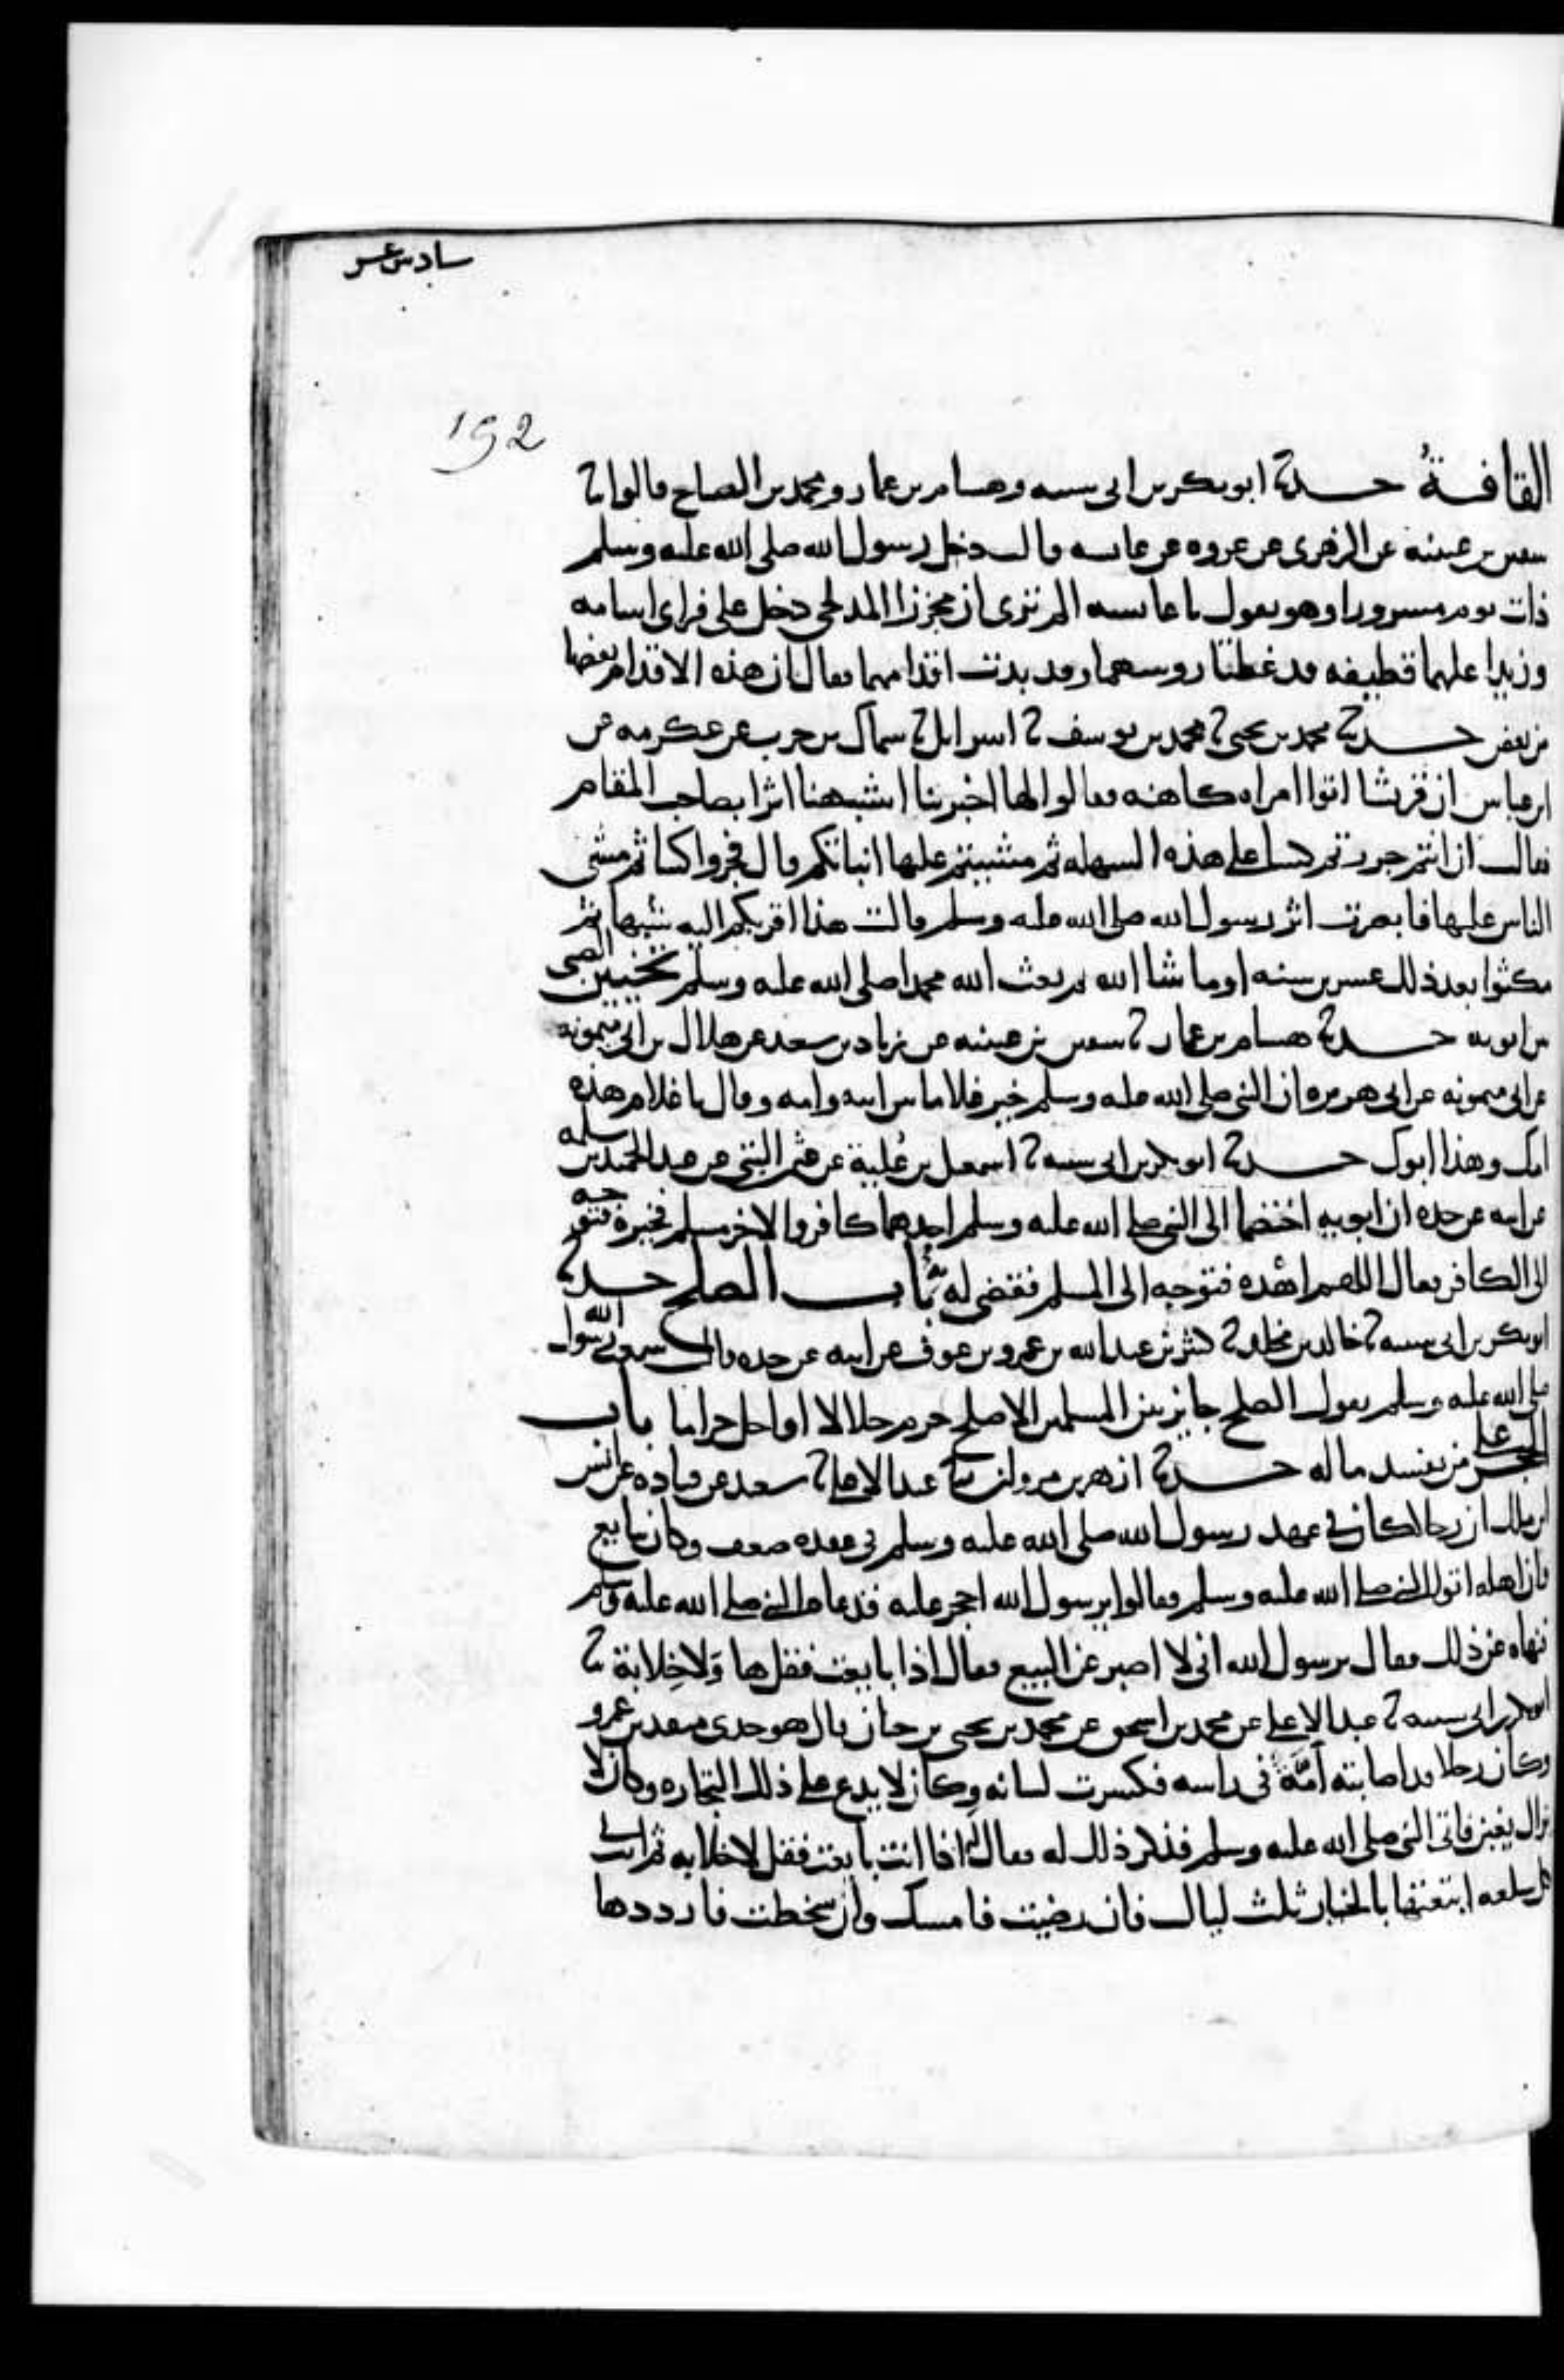 سادس عشر
192
القافةُ حدثنا ابو بكر بن ابى شيبه وهشام بن عمار ومحمد بن الصباح قالوا ثنا
سفين بن عيينه عن الزهرى عن عروه عن عائشه قالت دخل رسول الله صلى الله عليه وسلم
ذات يوم مسرورا وهو يقول يا عائشه الم ترى ان مجززا المدلجى دخل على فراى اسامه
وزيدا عليهما قطيفه قد غطتا روسهما وقد بدت اقدامهما فقال ان هذه الاقدام بعضها
من بعض حدثنا محمد بن يحيى ثنا محمد بن يوسف ثنا اسرايل ثنا سماك بن حرب عن عكرمه عن
ابن عباس ان قريشا اتوا امراه كاهنه فقالوا لها اخبرينا اشبهنا اثرا بصاحب المقام
فقالت ان انتم جررتم كسا على هذه السهله ثم مشيتم عليها انباتكم قال فجروا كسا ثم مشى
الناس عليها فابصرت اثر رسول الله صلى الله عليه وسلم قالت هذا اقربكم اليه شبها ثم
مكثوا بعد ذلك عشرين سنه او ما شا الله ثم بعث الله محمدا صلى الله عليه وسلم تخيير الصبى
بين ابويه حدثنا هشام بن عمار ثنا سفين بن عيينه عن زياد بن سعد عن هلال بن ابى ميمونه
عن ابى ميمونه عن ابى هريره ان النبى صلى الله عليه وسلم خير غلاما بين ابيه وامه وقال يا غلام هذه
امك وهذا ابوك حدثنا ابو بكر بن ابى شيبه ثنا اسمعيل بن عُلية عن عثمن البتى عن عبد الحميد بن سلمه
عن ابيه عن جده ان ابويه اختصما الى النبى صلى الله عليه وسلم احدهما كافر والاخر مسلم فخيره فتوجه
الى الكافر فقال اللهم اهْده فتوجه الى المسلم فقضى له به باب الصلح حدثنا
ابو بكر بن ابى شيبه ثنا خالد بن مخلد ثنا كثير بن عبد الله بن عمرو بن عوف عن ابيه عن جده قال سمعت رسول الله
صلى الله عليه وسلم يقول الصلح جايز بين المسلمين الا صلح حرم حلالا او احل حراما باب
الحجر على من يفسد ماله حدثنا ازهر بن مروان ثنا عبد الاعلى ثنا سعيد عن قتاده عن انس
ابن ملك ان رجلا كان فى عهد رسول الله صلى الله عليه وسلم فى عقده ضعف وكان يبايع
وان اهله اتوا النبى صلى الله عليه وسلم فقالوا يرسول الله احجر عليه فدعاه النبى صلى الله عليه وسلم
فنهاه عن ذلك فقال يرسول الله انى لا اصبر عن البيع فقال اذا بايعت فقل ها وَلا خِلابة ثنا
ابو بكر بن ابى شيبه ثنا عبد الاعلى عن محمد بن اسحق عن محمد بن يحيى بن حبان قال هو جدى منقذ بن عمرو
وكان رجلا قد اصابته آمَّة فى راسه فكسرت لسانه وكان لا يدع على ذلك التجاره وكان لا
يزال يغبن فاتى النبى صلى الله عليه وسلم فذكر ذلك له فقال له اذا انت بايعت فقل لا خلابه ثم انت فى
كل سلعه ابتعتها بالخيار ثلث ليال فان رضيت فامسك وان سخطت فارددها